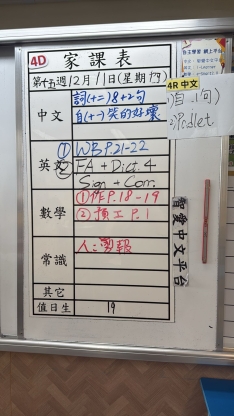 4D 家課表
第十五週12月11日(星期四)
中文
詞(十二)8+2句
自(十一)笑的好壞
英文
① WB P.21-22
② FA + Dict. 4
Sign + Corr.
數學
①作P.18-19
②預工P.1
常識
人:剪報
其它
值日生
19
4R 中文
1)自
2)Padlet
智愛中文平台